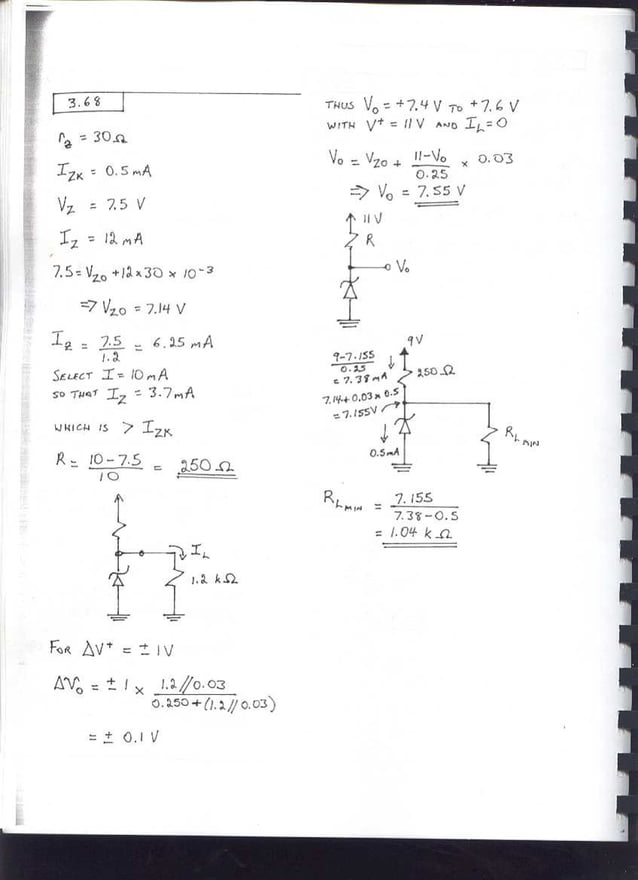 3.68
r₂ = 30Ω
I_ZK = 0.5mA
V_Z = 7.5 V
I_Z = 12mA
7.5 = V_ZO + 12 × 30 × 10⁻³
⇒ V_ZO = 7.14 V
I_R = 7.5/1.2 = 6.25 mA
SELECT I = 10mA
SO THAT I_Z = 3.7mA
WHICH IS > I_ZK
R = 10-7.5/10 = 250 Ω
I_L
1.2 kΩ
FOR ΔV⁺ = ± 1V
ΔV_O = ± 1 × 1.2//0.03 / 0.250+(1.2//0.03)
= ± 0.1 V
THUS V_O = +7.4 V TO +7.6 V
WITH V⁺ = 11V AND I_L=0
V_O = V_ZO + 11-V_O/0.25 × 0.03
⇒ V_O = 7.55 V
11V
R
V_O
9V
9-7.155/0.25
= 7.38mA
250 Ω
7.14+0.03×0.5
= 7.155V
0.5mA
R_L MIN
R_L MIN = 7.155/7.38-0.5
= 1.04 kΩ